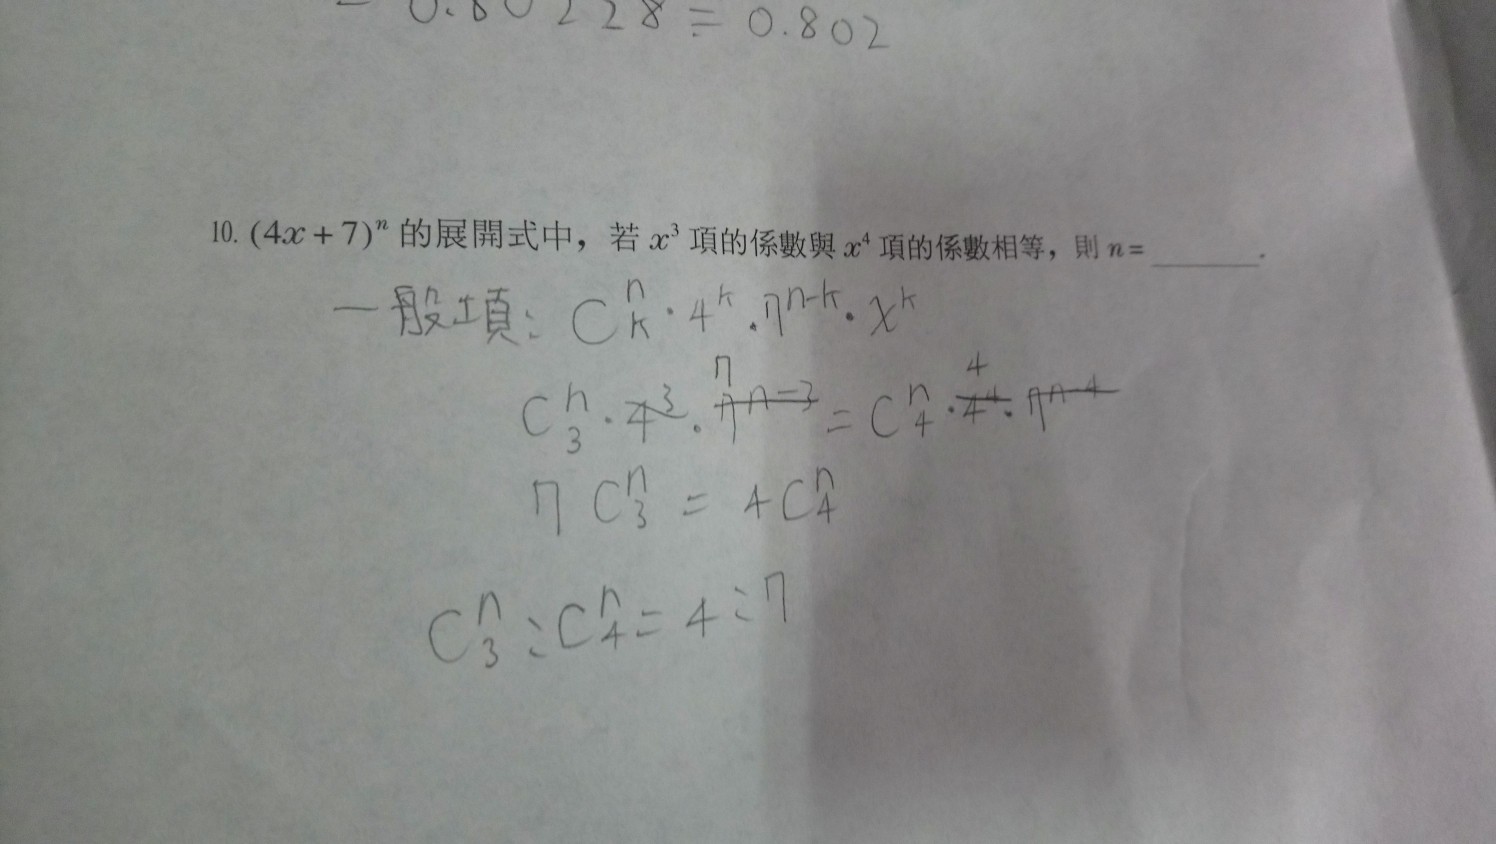 = 0.80228 ≒ 0.802
10. (4x+7)ⁿ 的展開式中，若 x³ 項的係數與 x⁴ 項的係數相等，則 n= ______.
一般項: Cⁿₖ · 4ᵏ · 7ⁿ⁻ᵏ · xᵏ
Cⁿ₃ · 4³ · 7 7ⁿ⁻³ = Cⁿ₄ · 4 4⁴ · 7ⁿ⁻⁴
7 Cⁿ₃ = 4 Cⁿ₄
Cⁿ₃ : Cⁿ₄ = 4 : 7